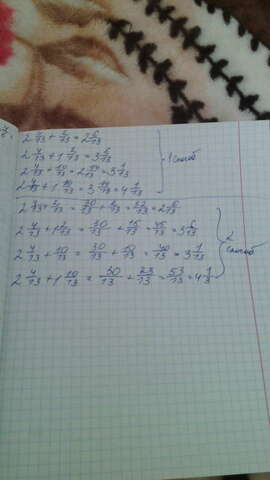 2 4/13 + 2/13 = 2 6/13
2 4/13 + 1 2/13 = 3 6/13
2 4/13 + 10/13 = 2 14/13 = 3 1/13
2 4/13 + 1 10/13 = 3 14/13 = 4 1/13
1 способ
2 4/13 + 2/13 = 30/13 + 2/13 = 32/13 = 2 6/13
2 4/13 + 1 2/13 = 30/13 + 15/13 = 45/13 = 3 6/13
2 4/13 + 10/13 = 30/13 + 10/13 = 40/13 = 3 1/13
2 4/13 + 1 10/13 = 30/13 + 23/13 = 53/13 = 4 1/13
2 способ